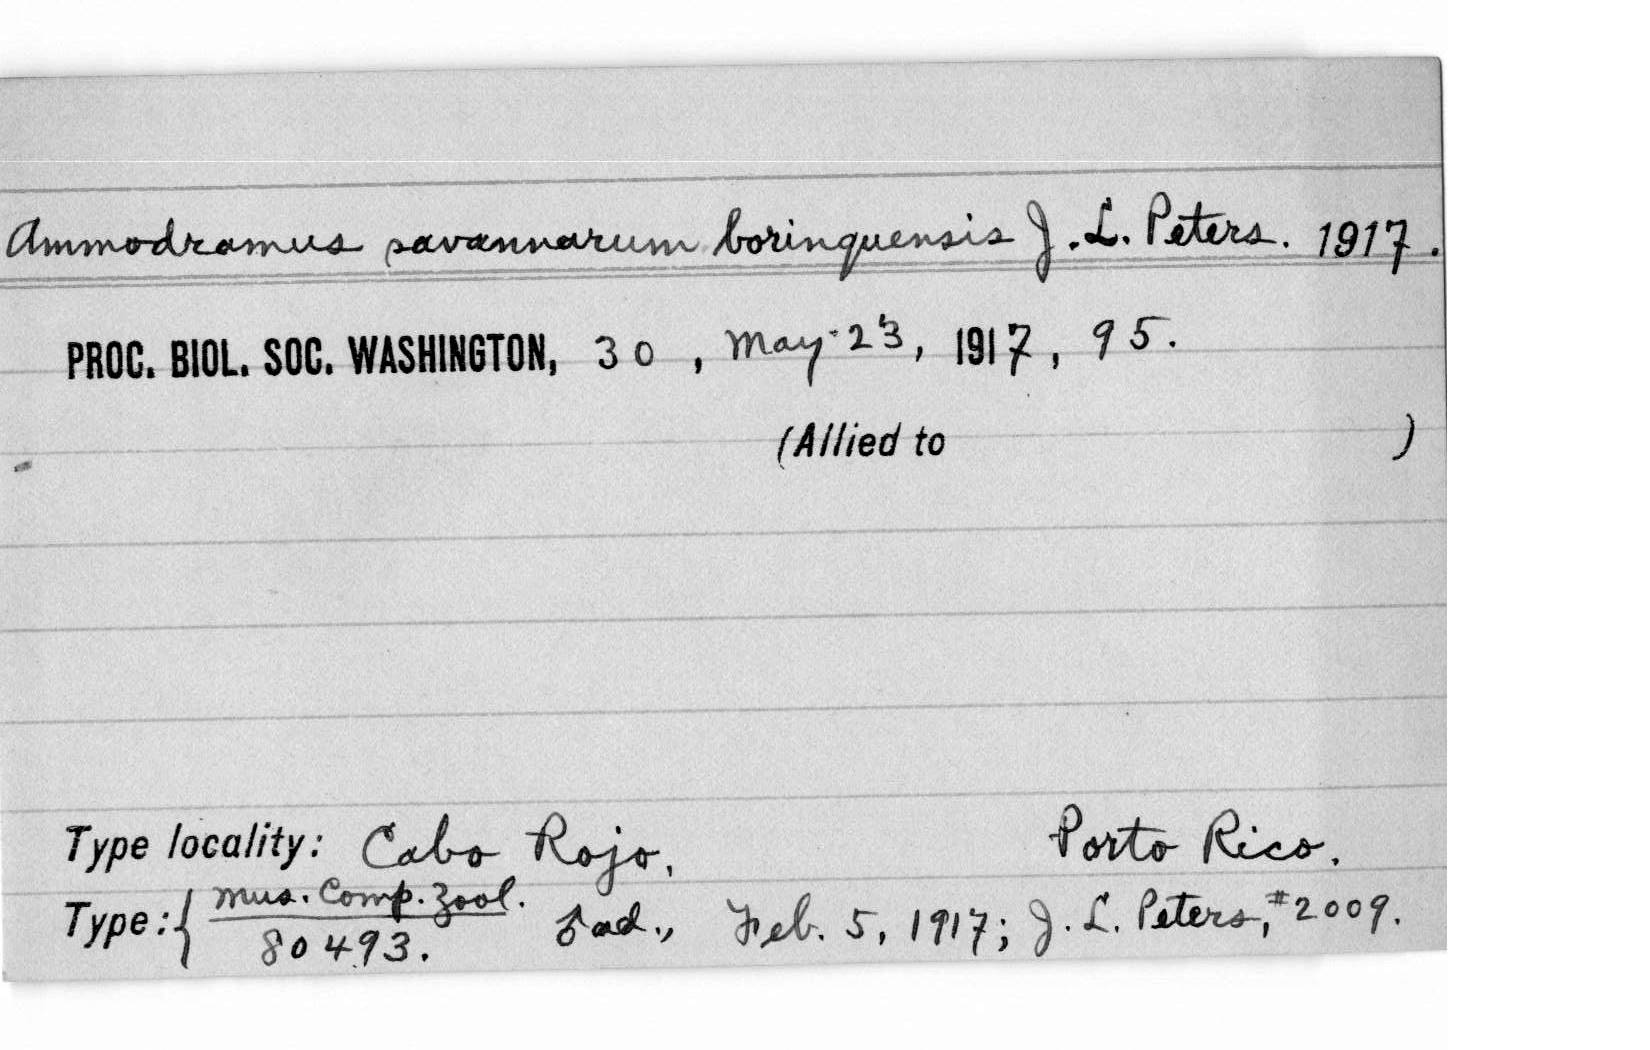 Ammodramus savannarum borinquensis J. L. Peters. 1917.
PROC. BIOL. SOC. WASHINGTON, 30, May 23, 1917, 95.
(Allied to )
Type locality: Cabo Rojo, Porto Rico.
Type: { Mus. Comp. Zool. ad., Feb. 5, 1917; J. L. Peters, #2009.
80493.